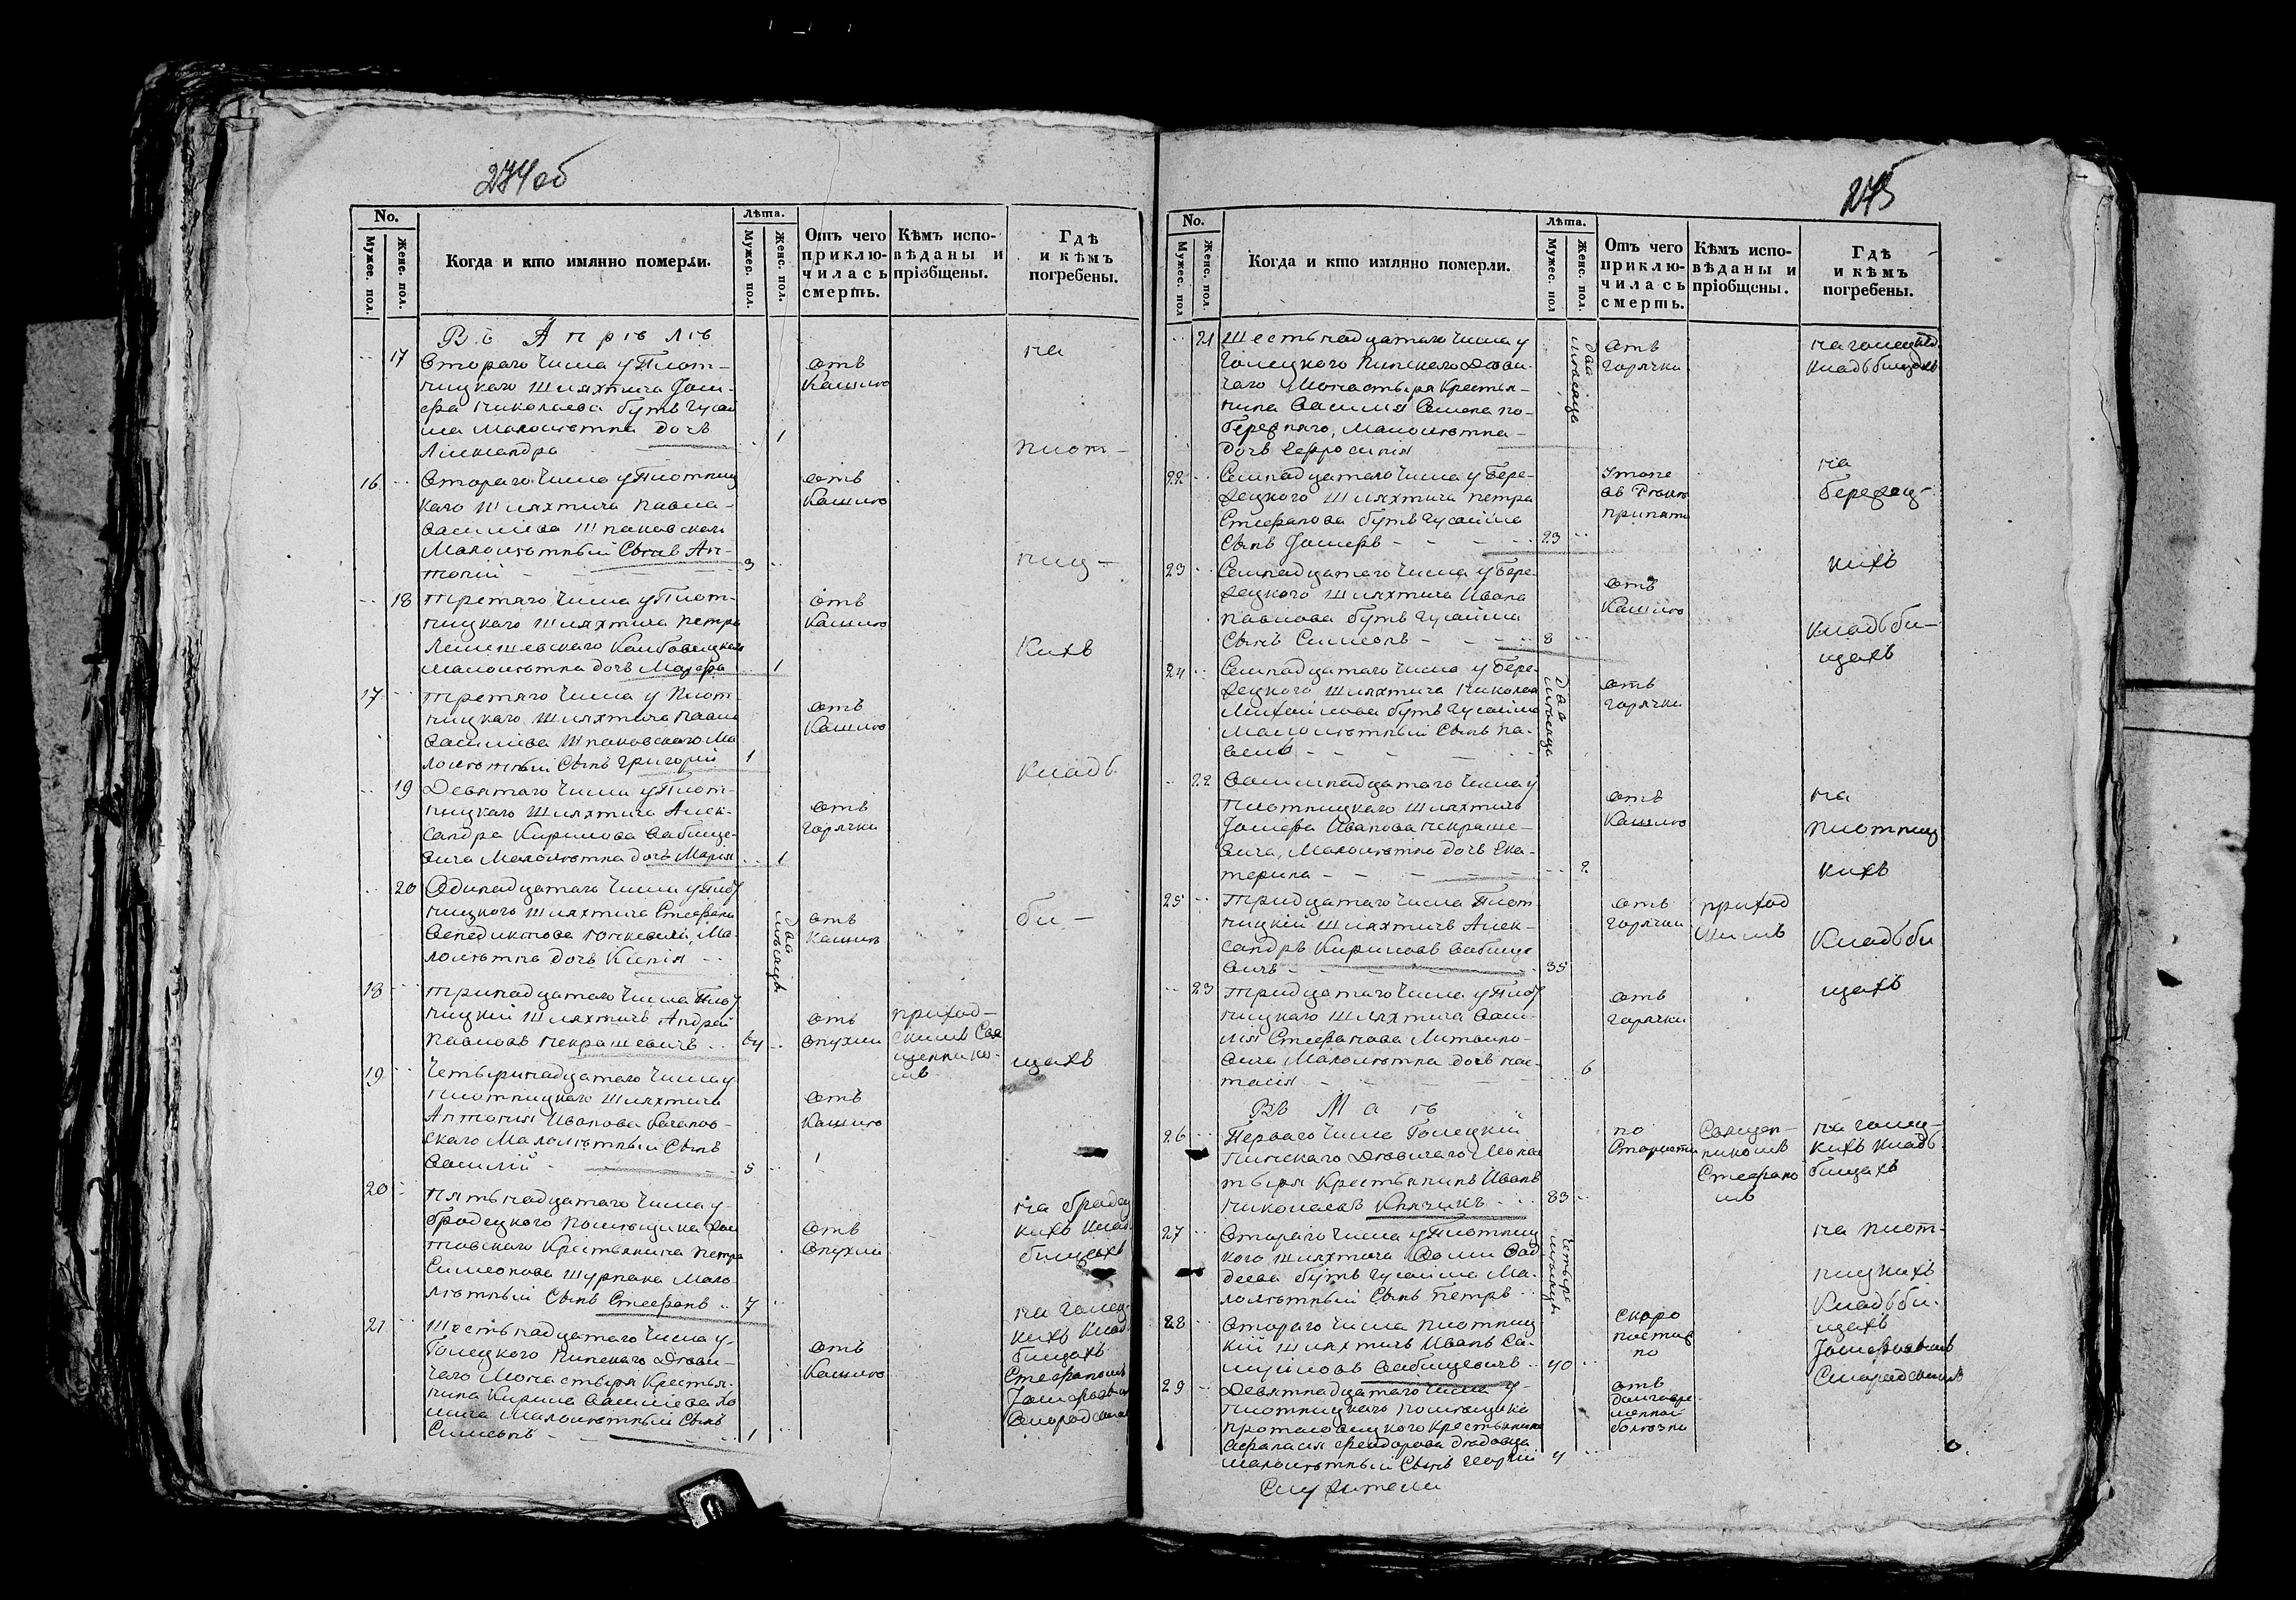 274об
No.
Мужес. пол.
Женс. пол.
Когда и кто имянно померли.
Лѣта.
Мужес. пол.
Женс. пол.
Отъ чего приклю-чилась смерть.
Кѣмъ испо-вѣданы и пріобщены.
Гдѣ и кѣмъ погребены.
Въ Апрѣлѣ
17 Втораго числа у Плот-
ницкаго шляхтича Іоси-
фа Николаева Бутвгусай
ла малолѣтна дочь
Александра 1
отъ
Кашлю
16 Втораго числа у Плотниц
каго шляхтича Павла
Василіева Шпаковскаго
малолѣтный сынъ Ан-
тоній 3
отъ
Кашлю
18 Третяго числа у Плот-
ницкаго шляхтича Петра
малолѣтна дочь 1
отъ
Кашлю
17 Третяго числа у Плот-
ницкаго шляхтича Павла
Василіева Шпаковскаго ма
лолѣтный сынъ Григорій 1
отъ
Кашлю
19 Девятаго числа у Плот-
ницкаго шляхтича Алек-
сандра Кирилова Бабице-
вича малолѣтна дочь Марія 1
отъ
горячки
20 Одинадцатаго числа у Плот
ницкого шляхтича Стефана
Венедиктова ма-
лолѣтна дочь два мѣсяца
отъ
Кашлю
18 Тринадцатаго числа Плот
ницкій шляхтичъ Андрей
Павловъ Некрашевичъ 64
отъ
опухли
приход-
скимъ Свя
щеннико-
мъ
19 Четырнадцатаго числа у
Плотницкаго шляхтича
Антонія Иванова
скаго малолѣтный сынъ
Василій 5
отъ
Кашлю
на
плот-
ниц-
кихъ
кладб
би-
щахъ
20 Пятьнадцатаго числа у
Бродецкого помѣщика
Крестьянина Петра
Симеонова Шурпака мало
лѣтный сынъ Стефанъ 7
отъ
опухли
на бродец
кихъ клад
бищахъ
21 Шестьнадцатаго числа у
Голецкого Пинского Дѣви-
чаго Монастыря Крестья-
нина Кирила Василіева
малолѣтный сынъ
Симеонъ 1
отъ
Кашлю
на голец
кихъ клад
бищахъ
Стефаномъ
Іосифовымъ
Смородскимъ
275
No.
Мужес. пол
Женс. пол.
Когда и кто имянно померли.
Лѣта.
Мужес. пол
Женс. пол
Отъ чего приклю-чилась смерть.
Кѣмъ испо-вѣданы и пріобщены.
Гдѣ и кѣмъ погребены.
21 Шестьнадцатаго числа у
Голецкого Пинского Дѣви-
чаго Монастыря Крестья-
нина Василія Семена по-
бережнаго, малолѣтна
дочь Ефросинія два мѣсяца
отъ
горячки
на голецких
кладбищахъ
22 Семнадцатаго числа у Бере-
зецкого шляхтича Петра
Стефанова Бутвгусайла
сынъ Іосифъ 23
утопе
въ Рѣкѣ
припяти
23 Семнадцатаго числа у Бере-
зецкого шляхтича Ивана
Павлова Бутвгусайла
сынъ Симеонъ 8
отъ
Кашлю
24 Семнадцатаго числа у Бере-
зецкого шляхтича Николая
Михайлова Бутвгусайла
малолѣтный сынъ Па-
велъ два мѣсяца
отъ
горячки
на
березец-
кихъ
кладбби-
щахъ
22 Восимнадцатаго числа у
Плотницкаго шляхтича
Іосифа Иванова Некраше-
вича, малолѣтна дочь Ека-
терина 2
отъ
Кашлю
25 Тридцатаго числа Плот
ницкій шляхтичъ Алек-
сандръ Кириловъ Бабице
вичъ 35
отъ
горячки
приход
шимъ
23 Тридцатаго числа у Плот
ницкаго шляхтича Васи-
лія Стефанова Литвино-
вича малолѣтна дочь Нас-
тасія 6
отъ
горячки
на
плотниц
кихъ
кладбби
щахъ
Въ Маѣ
26 Перваго числа Голецкій
Пинскаго Дѣвичаго Монас
тыря Крестьянинъ Иванъ
Николаевъ Князикъ 83
по
старости
Священ-
никомъ
Стефано
мъ
на голец-
кихъ кладб
бищахъ
27 Втораго числа у Плотниц
кого шляхтича
Бутвгусайла ма-
лолѣтный сынъ Петръ четыре мѣсяцы
28 Втораго числа Плотниц
кій шляхтичъ Иванъ Са-
муйловъ Бабицевичъ 40
скоро
постиж
но
29 Девятнадцатаго числа у
Плотницкаго помѣщика
Крестьянина
Афанасія Феодорова
малолѣтный сынъ Георгій 4
отъ
долговре
менной
болѣзни
на плот-
ницкихъ
кладбби-
щахъ
Іосифовымъ
Смородскимъ
Служители